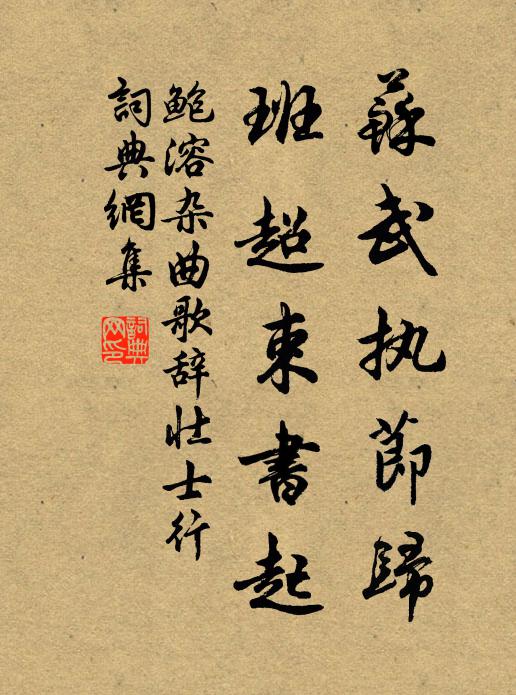 蘇武执節歸
班超束書起
鲍溶杂曲歌辞壮士行
詞典網集
詞典
网印